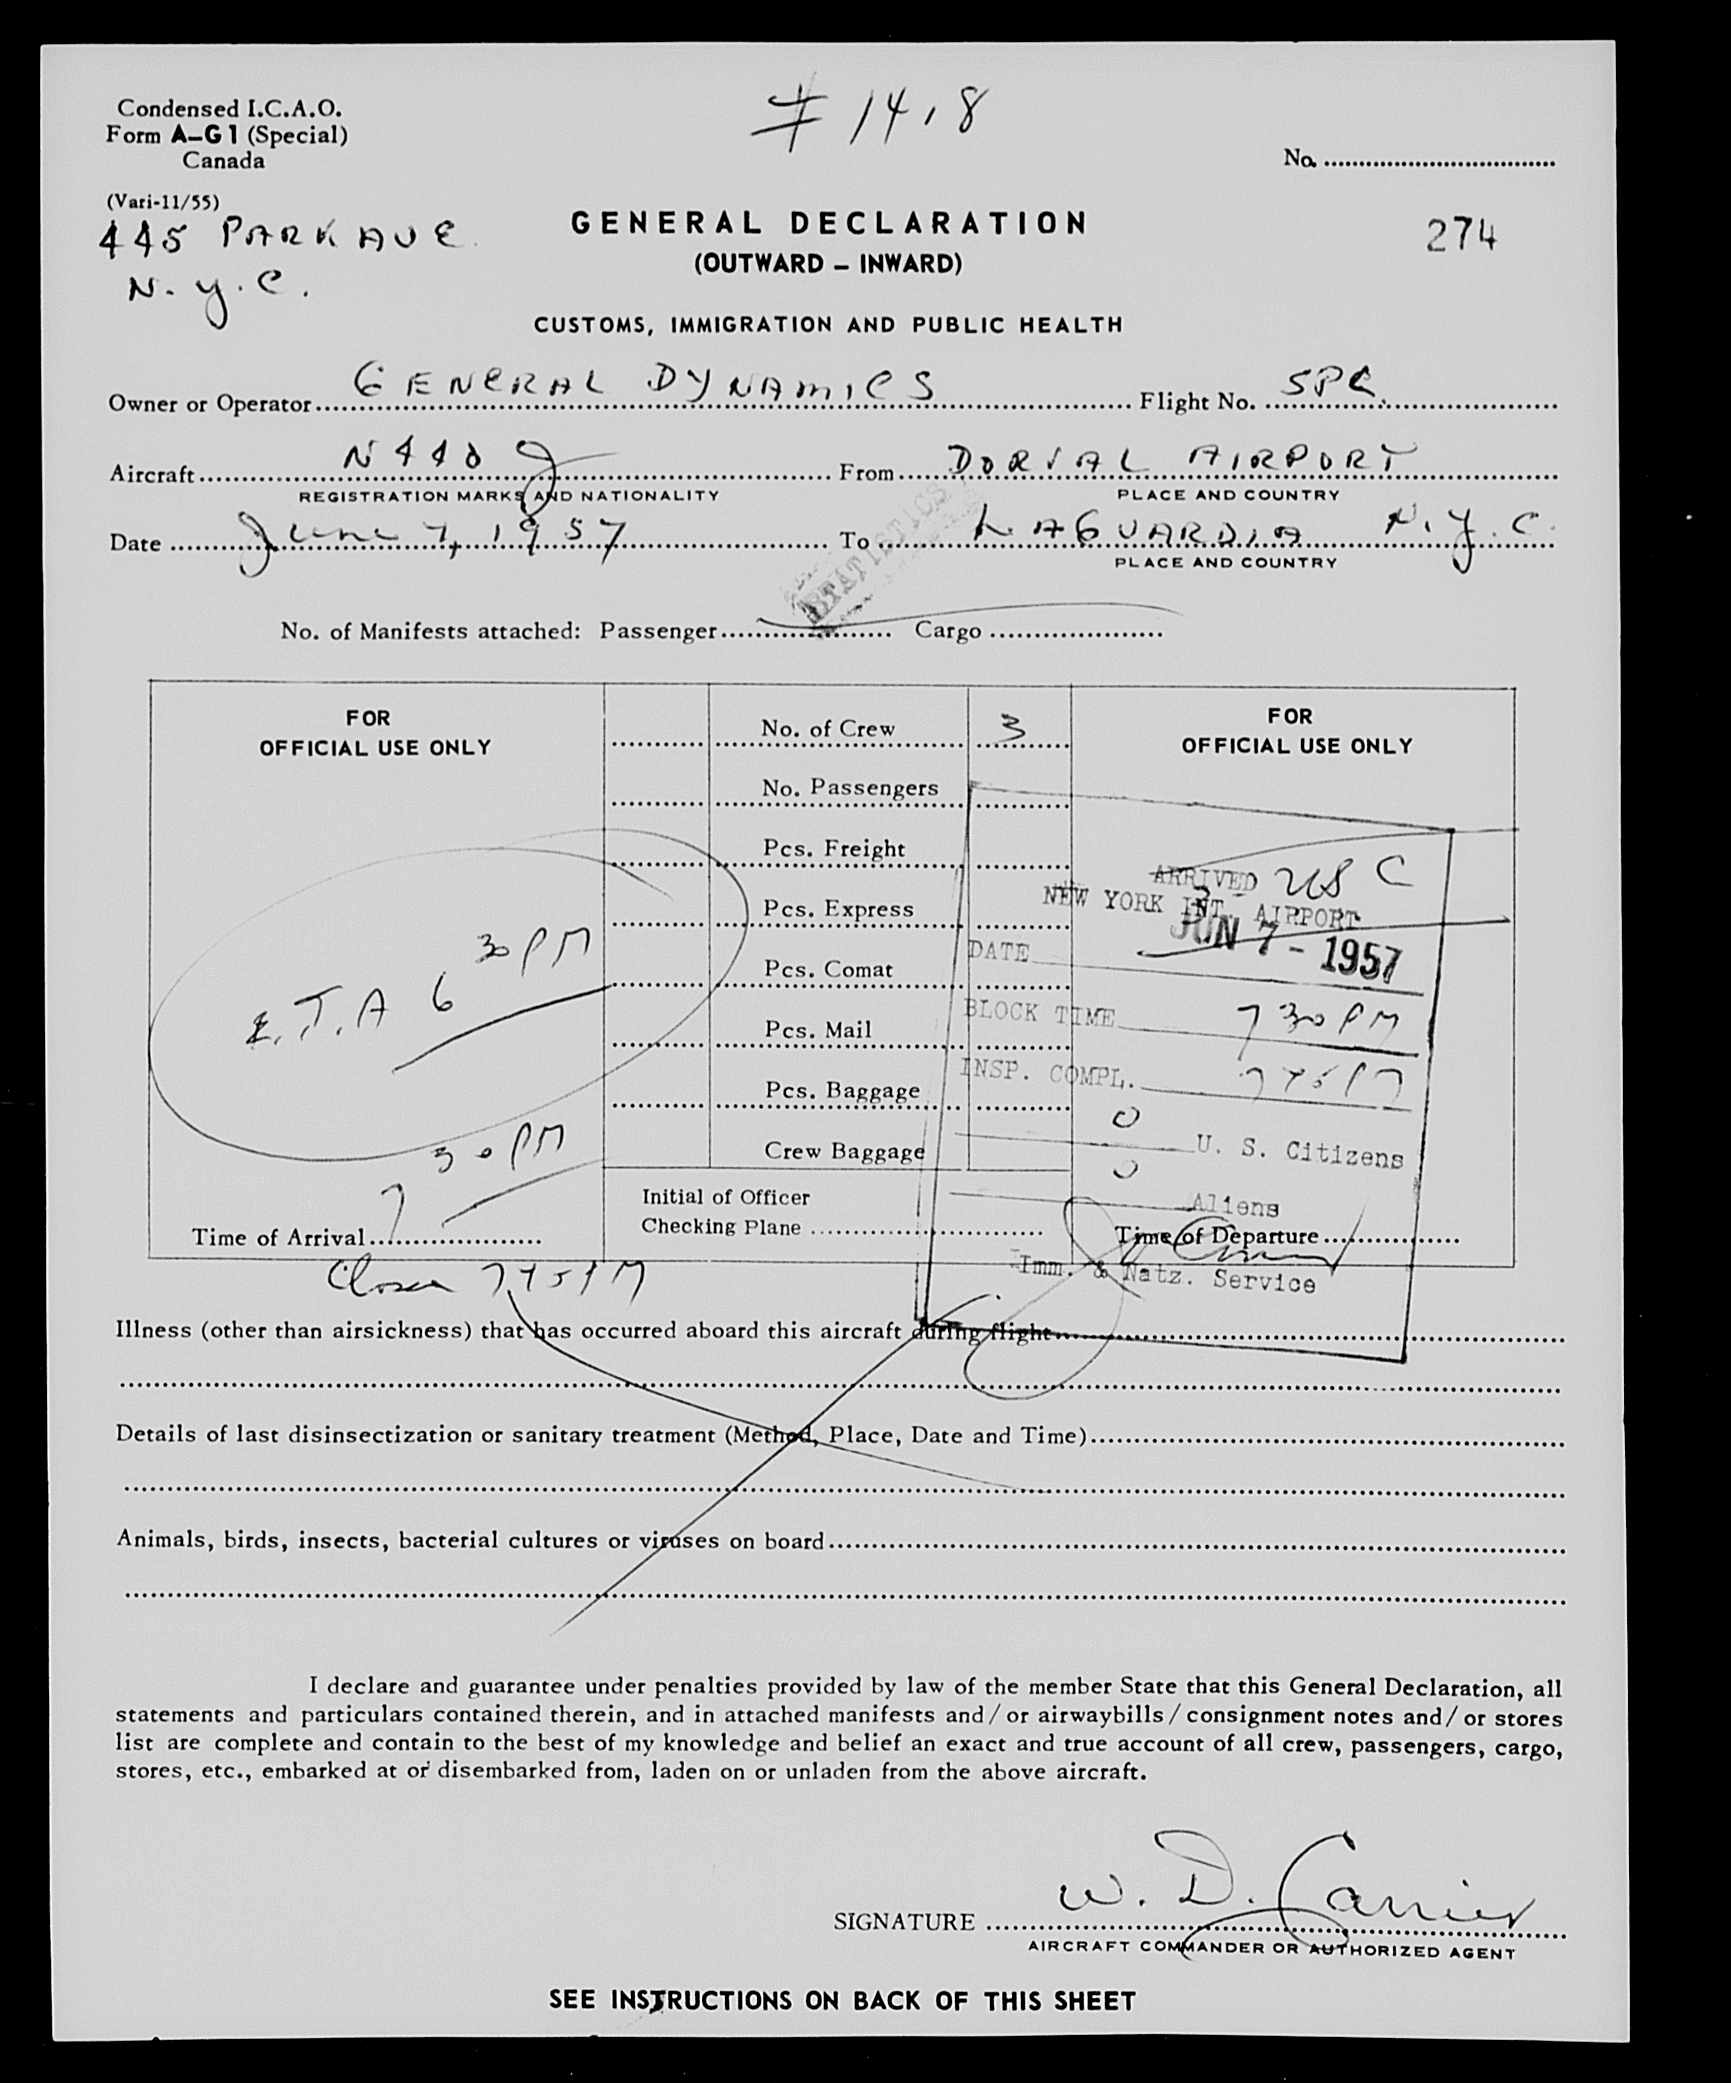 # 1418
Condensed I.C.A.O.
Form A-G1 (Special)
Canada
No.
(Vari-11/55)
445 PARK AVE.
N.Y.C.
GENERAL DECLARATION
274
(OUTWARD – INWARD)
CUSTOMS, IMMIGRATION AND PUBLIC HEALTH
Owner or Operator GENERAL DYNAMICS Flight No. SPC.
Aircraft N440J From DORVAL AIRPORT
REGISTRATION MARKS AND NATIONALITY PLACE AND COUNTRY
Date June 7, 1957 To LAGUARDIA N.Y.C.
PLACE AND COUNTRY
STATISTICS
No. of Manifests attached: Passenger Cargo
FOR
OFFICIAL USE ONLY
E.T.A 6 30 PM
7 30 PM
Time of Arrival
Close 745 PM
No. of Crew 3
No. Passengers
Pcs. Freight
Pcs. Express
Pcs. Comat
Pcs. Mail
Pcs. Baggage
Crew Baggage
Initial of Officer
Checking Plane
FOR
OFFICIAL USE ONLY
ARRIVED
3 USC
NEW YORK INT. AIRPORT
DATE JUN 7 - 1957
BLOCK TIME 7 30 PM
INSP. COMPL. 7 45 PM
0 U. S. Citizens
0 Aliens
Time of Departure
Imm. & Natz. Service
Illness (other than airsickness) that has occurred aboard this aircraft during flight
Details of last disinsectization or sanitary treatment (Method, Place, Date and Time)
Animals, birds, insects, bacterial cultures or viruses on board
I declare and guarantee under penalties provided by law of the member State that this General Declaration, all
statements and particulars contained therein, and in attached manifests and/or airwaybills/consignment notes and/or stores
list are complete and contain to the best of my knowledge and belief an exact and true account of all crew, passengers, cargo,
stores, etc., embarked at or disembarked from, laden on or unladen from the above aircraft.
SIGNATURE W. D. Carrier
AIRCRAFT COMMANDER OR AUTHORIZED AGENT
SEE INSTRUCTIONS ON BACK OF THIS SHEET